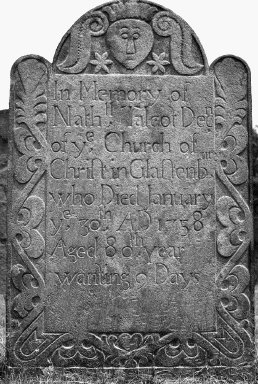 In Memory of
Nathˡˡ Talcot Deᶜ
of yᵉ Church of
Chriſt in Glaſſenbʳʸ
who Died January
yᵉ 30ᵗʰ AD 1758
Aged 80ᵗʰ year
wanting 9 Days